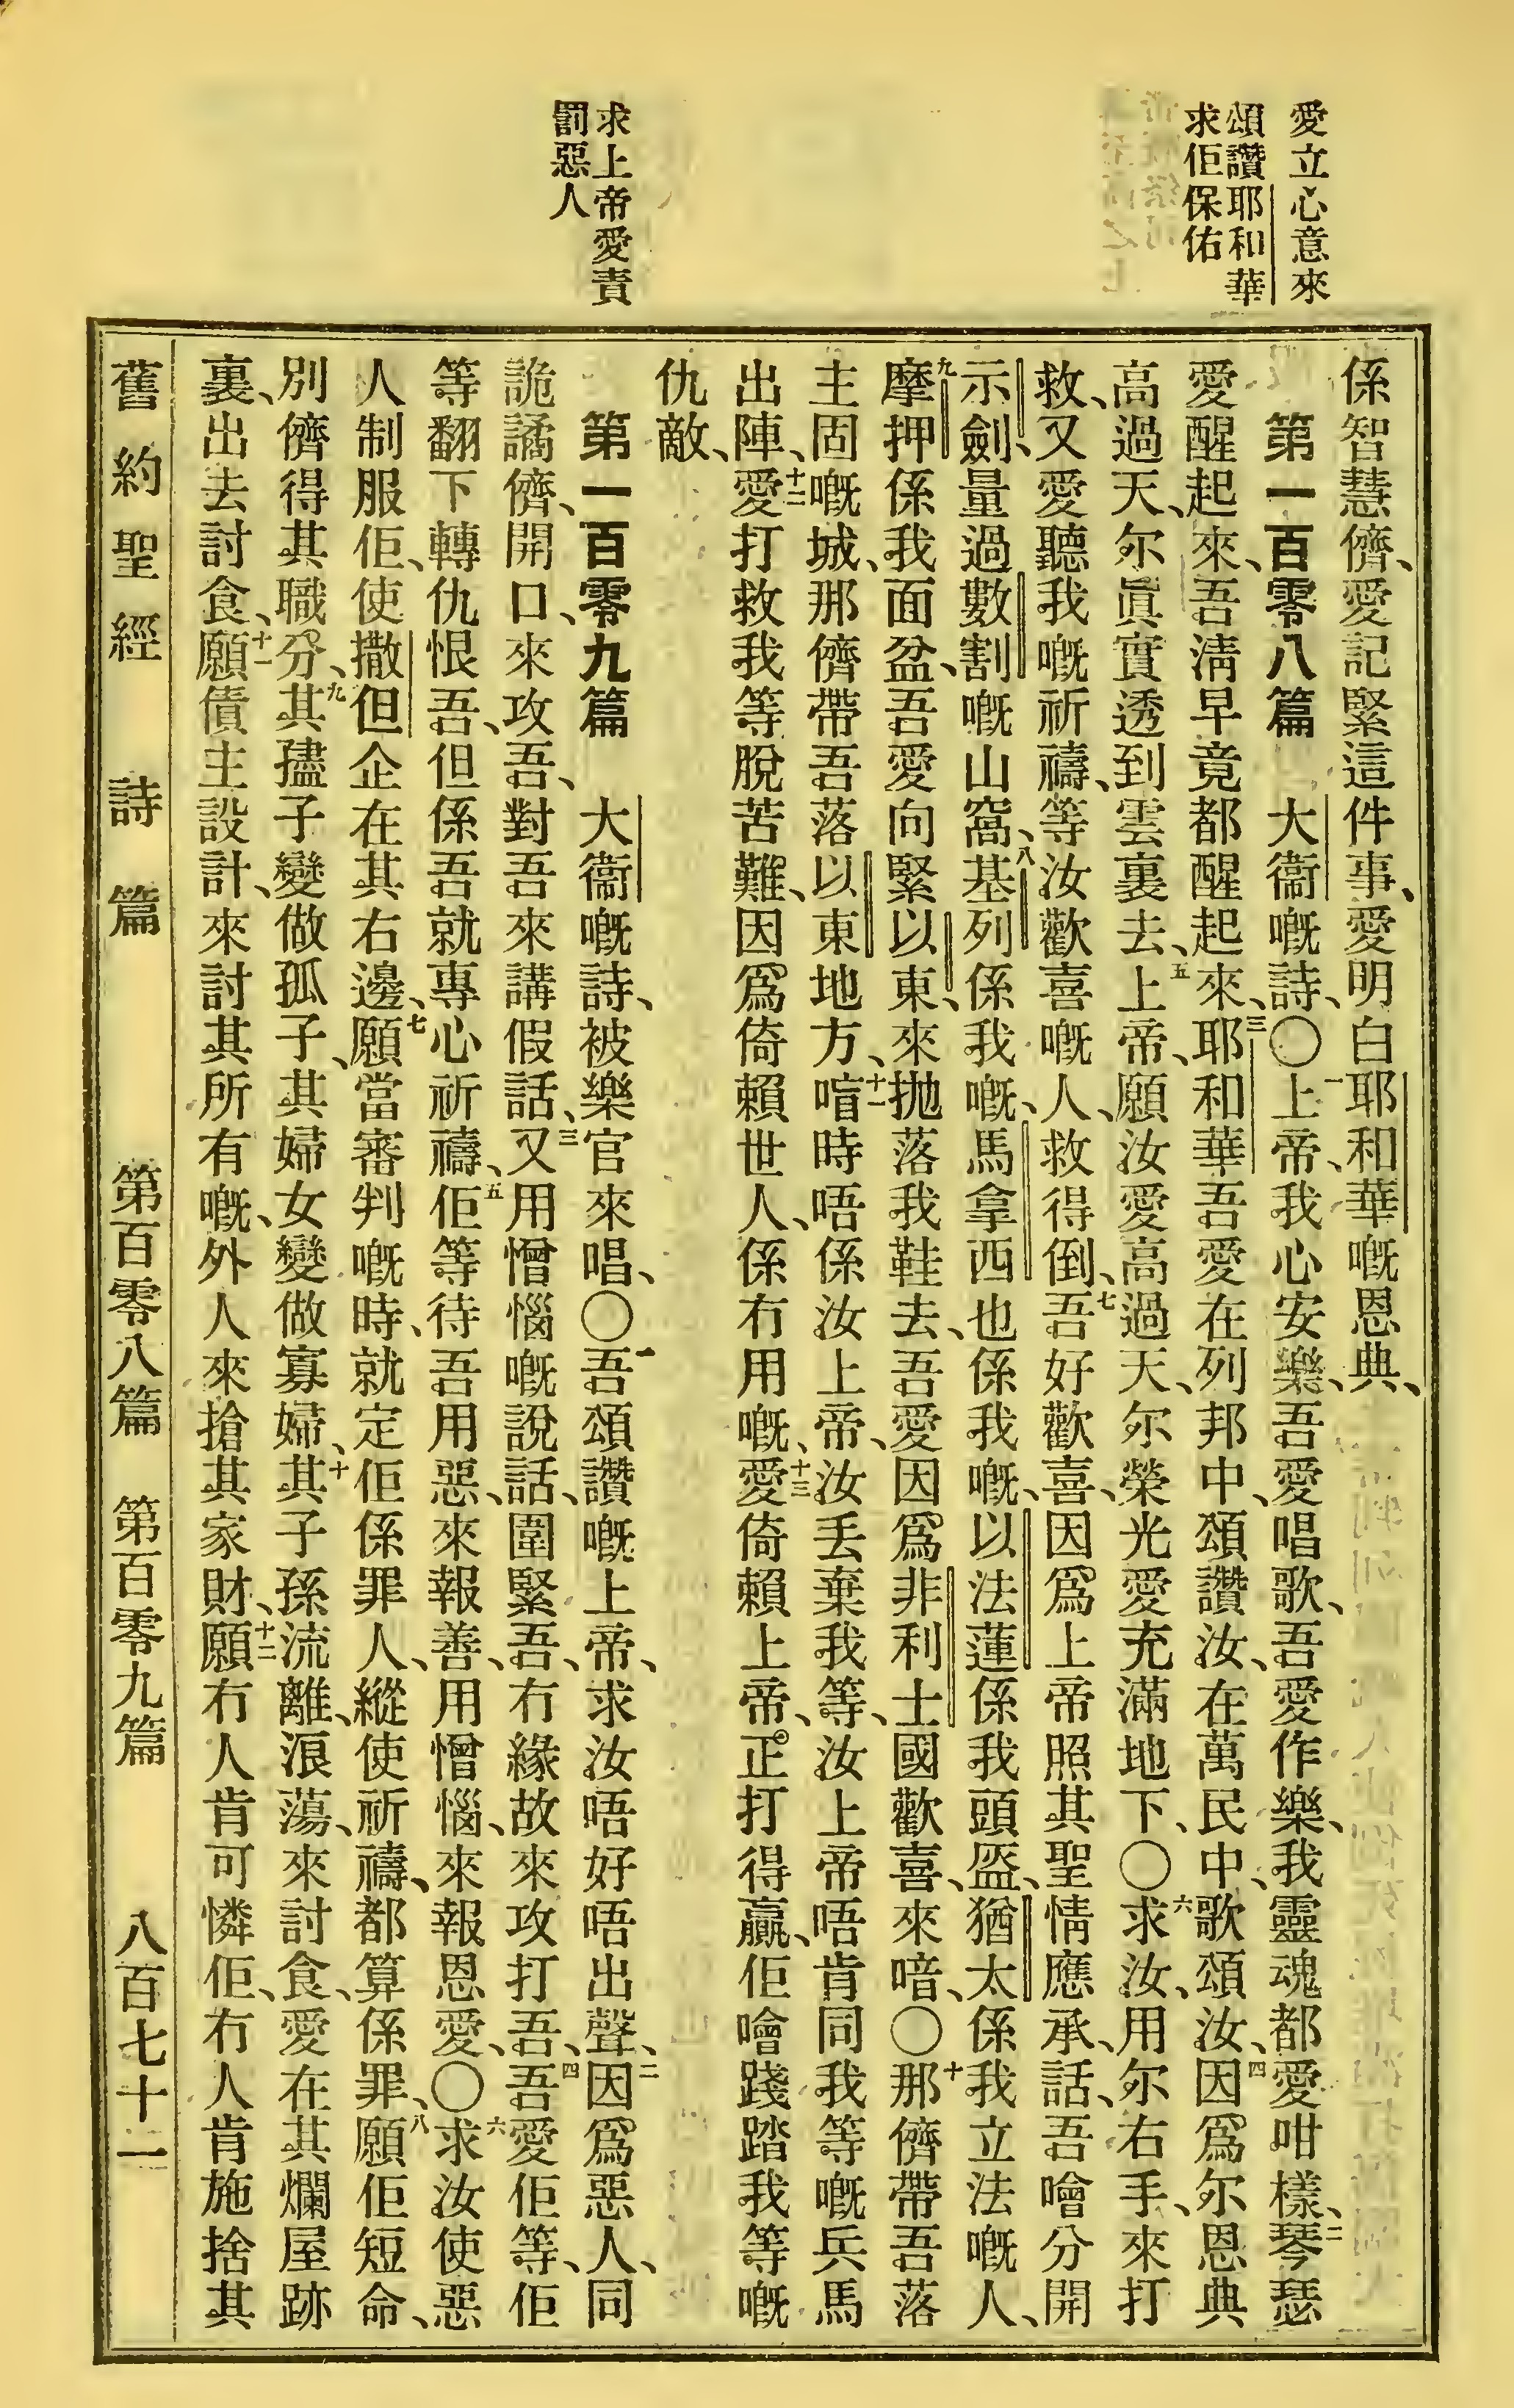 愛立心意來
頌讚耶和華
求佢保佑
求上帝愛責
罰惡人
係智慧儕、愛記緊這件事、愛明白耶和華嘅恩典、
第一百零八篇 大衞嘅詩、〇一上帝、我心安樂、吾愛唱歌、吾愛作樂、我靈魂都愛咁樣、二琴瑟
愛醒起來、吾淸早竟都醒起來、三耶和華吾愛在列邦中、頌讚汝、在萬民中、歌頌汝、四因爲尔恩典
高過天、尔眞實透到雲裏去、五上帝、願汝愛高過天、尔榮光愛充滿地下、〇六求汝、用尔右手、來打
救、又愛聽我嘅祈禱、等汝歡喜嘅人、救得倒、七吾好歡喜、因爲上帝照其聖情應承、話、吾噲分開
示劍、量過數割嘅山窩、八基列係我嘅、馬拿西也係我嘅、以法蓮係我頭盔、猶太係我立法嘅人、
九摩押係我面盆、吾愛向緊以東、來拋落我鞋去、吾愛因爲非利士國歡喜、來喑、〇十那儕帶吾落
主固嘅城、那儕帶吾落以東地方、十一噾時唔係汝上帝、汝丟棄我等、汝上帝唔肯同我等嘅兵馬
出陣、十二愛打救我等脫苦難、因爲倚賴世人、係冇用嘅、十三愛倚賴上帝、正打得贏、佢噲踐踏我等嘅
仇敵、
第一百零九篇 大衞嘅詩、被樂官來唱、〇一吾頌讚嘅上帝、求汝唔好唔出聲、二因爲惡人、同
詭譎儕、開口、來攻吾、對吾來講假話、三又用憎惱嘅說話、圍緊吾、冇緣故來攻打吾、四吾愛佢等、佢
等翻下轉仇恨吾、但係吾就專心祈禱、五佢等待吾用惡、來報善、用憎惱、來報恩愛、〇六求汝使惡
人制服佢、使撒但企在其右邊、七願當審判嘅時、就定佢係罪人、縱使祈禱、都算係罪、八願佢短命、
別儕得其職分、九其孻子變做孤子、其婦女變做寡婦、十其子孫流離、浪蕩、來討食、愛在其爛屋跡
裏、出去討食、十一願債主設計、來討其所有嘅、外人來搶其家財、十二願冇人肯可憐佢、冇人肯施捨其
舊約聖經 詩篇 第百零八篇 第百零九篇 八百七十一